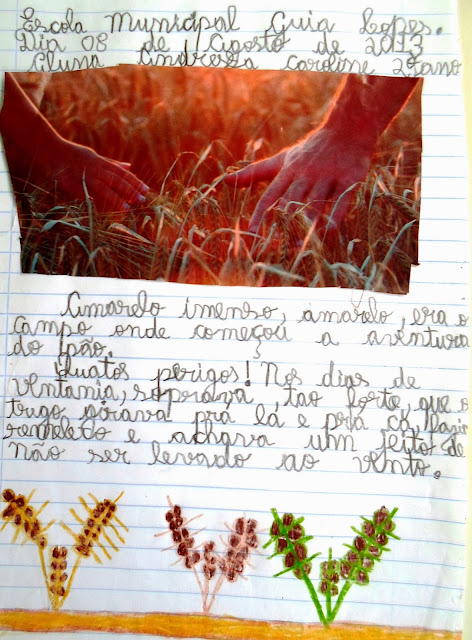 Escola Municipal Guia Lopes.
Dia 08 de Agosto de 2013
Aluna Andressa Caroline 2º ano
Amarelo imenso, amarelo, era o
campo onde começou a aventura
do pão.
Quatos perigos! Nos dias de
ventania, soprava tão forte, que o
trigo virava pra lá e pra cá, fazia
e achava um jeito de
não ser levado ao vento.